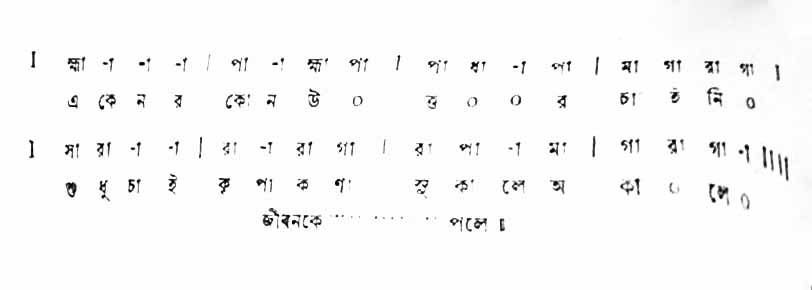 I হ্মা -া -া -া | পা -া হ্মা পা | পা ধা -া পা | মা গা রা গা I
এ কে ন র কো ন উ ০ ত্ত ০ ০ র চা ই নি ০
I সা রা -া -া | রা -া রা গা | রা পা -া মা | গা রা গা -া IIII
শু ধু চা ই কৃ পা ক ণা সু কা লে অ কা ০ লে ০
জীবনকে ················ পলে ॥